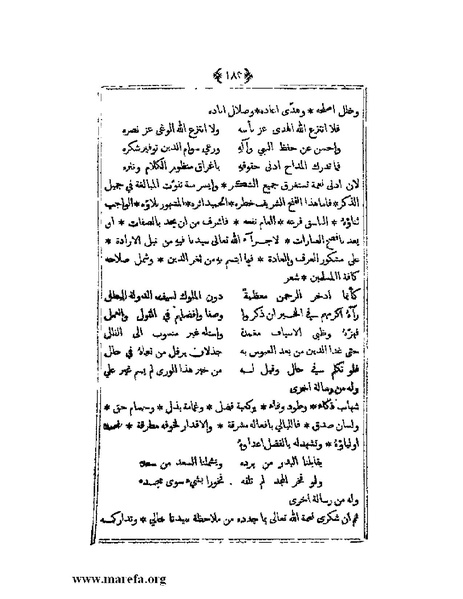 ﴿١٨٢﴾
وخلل اصلحه * وهدى اعاده * وضلال اباده
فلا انتزع الله الهدى عز بأسه ولا انتزع الله الوغى عز نصره
واحسن عن حفظ النبي وآله ورعي سوام الدين توفير شكره
فما تدرك المداح ادنى حقوقه باغراق منظور الكلام ونثره
لان ادنى نعمة تستغرق جميع الشكر * وايسر منة تفوت المبالغة في جميل
الذكر * فاما هذا الفتح الشريف خطره * الحميد اثره * المشهور بلاؤه * الواجب
ثناؤه * الباسق فرعه * العام نفعه * فاشرف من ان يحد بالصفات * او
يعد بافصح العبارات * لا جرآء الله تعالى سيدنا فيه من نبل الارادة *
على مشكور العرف والعادة * فيها ابتسم به من ثغر الدين * وشمل صلاحه
كافة المسلمين * شعر
كأنما ادخر الرحمن معظمه دون الملوك لسيف الدولة البطل
رآه اكرمهم في الخير ان ذكروا وصفا وافضلهم في القول والعمل
فهزه وظبى الاسياف مغمدة واسله غير منسوب الى الفلل
حتى غدا الدين من بعد العبوس به جذلان يرفل من نجاه في حلل
فلو تكلم في حال وقيل له من خير هذا الورى لم يسم غير علي
وله من رسالة اخرى
شهاب ذكاء * وطود وفاء * وكعبة فضل * وغمامة بذل * وحسام حق *
ولسان صدق * فالليالي بافعاله مشرقة * والاقدار لخوفه مطرقة *
اولياؤه * وتشهد له بالفضل اعداؤه
يقابلنا البدر من برده ويشملنا السعد من سعده
ولو فخر المجد لم تلفه فخورا بشيء سوى مجده
وله من رسالة اخرى
ثم ان شكرى نعمة الله تعالى بما جدده من ملاحظة سيدنا حالي * وتداركه
www.marefa.org